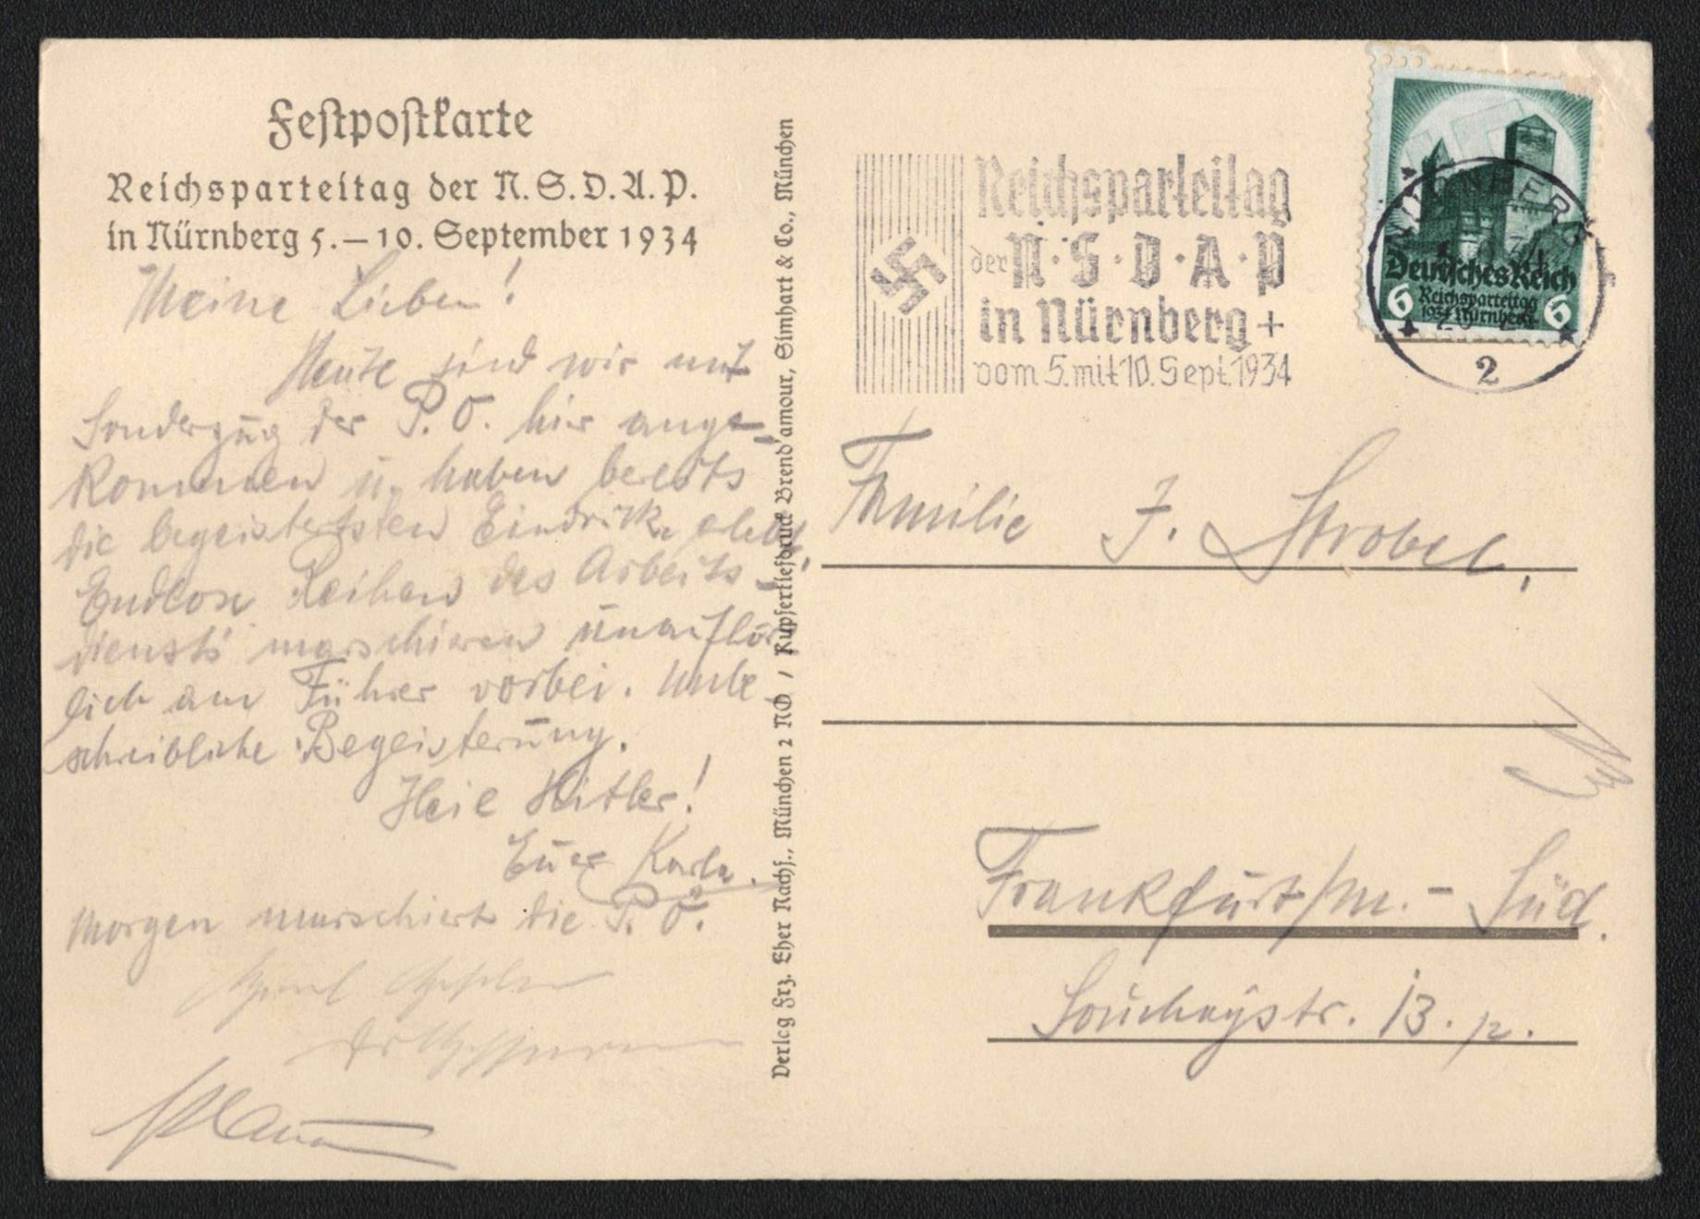 Festpostkarte
Reichsparteitag der N.S.D.A.P.
in Nürnberg 5.–10. September 1934
Meine Lieben!
Heute sind wir mit
Sonderzug der P.O. hier ange-
kommen u. haben bereits
die begeistertsten Eindrücke erlebt.
Endlose Reihen des Arbeits-
diensts marschieren unaufhör-
lich am Führer vorbei. Unbe-
schreibliche Begeisterung.
Heil Hitler!
Euer Karl
Morgen marschiert die P.O.
Verlag Frz. Eher Nachf., München 2 NO / Kupfertiefdruck Brend'amour, Simhart & Co., München
Reichsparteitag
der N·S·D·A·P
in Nürnberg +
vom 5. mit 10. Sept. 1934
NÜRNBERG
2
Deutsches Reich
6 Reichsparteitag 6
1934 Nürnberg
Familie J. Strobel,
Frankfurt/M. - Süd.
Souchaystr. 13. p.